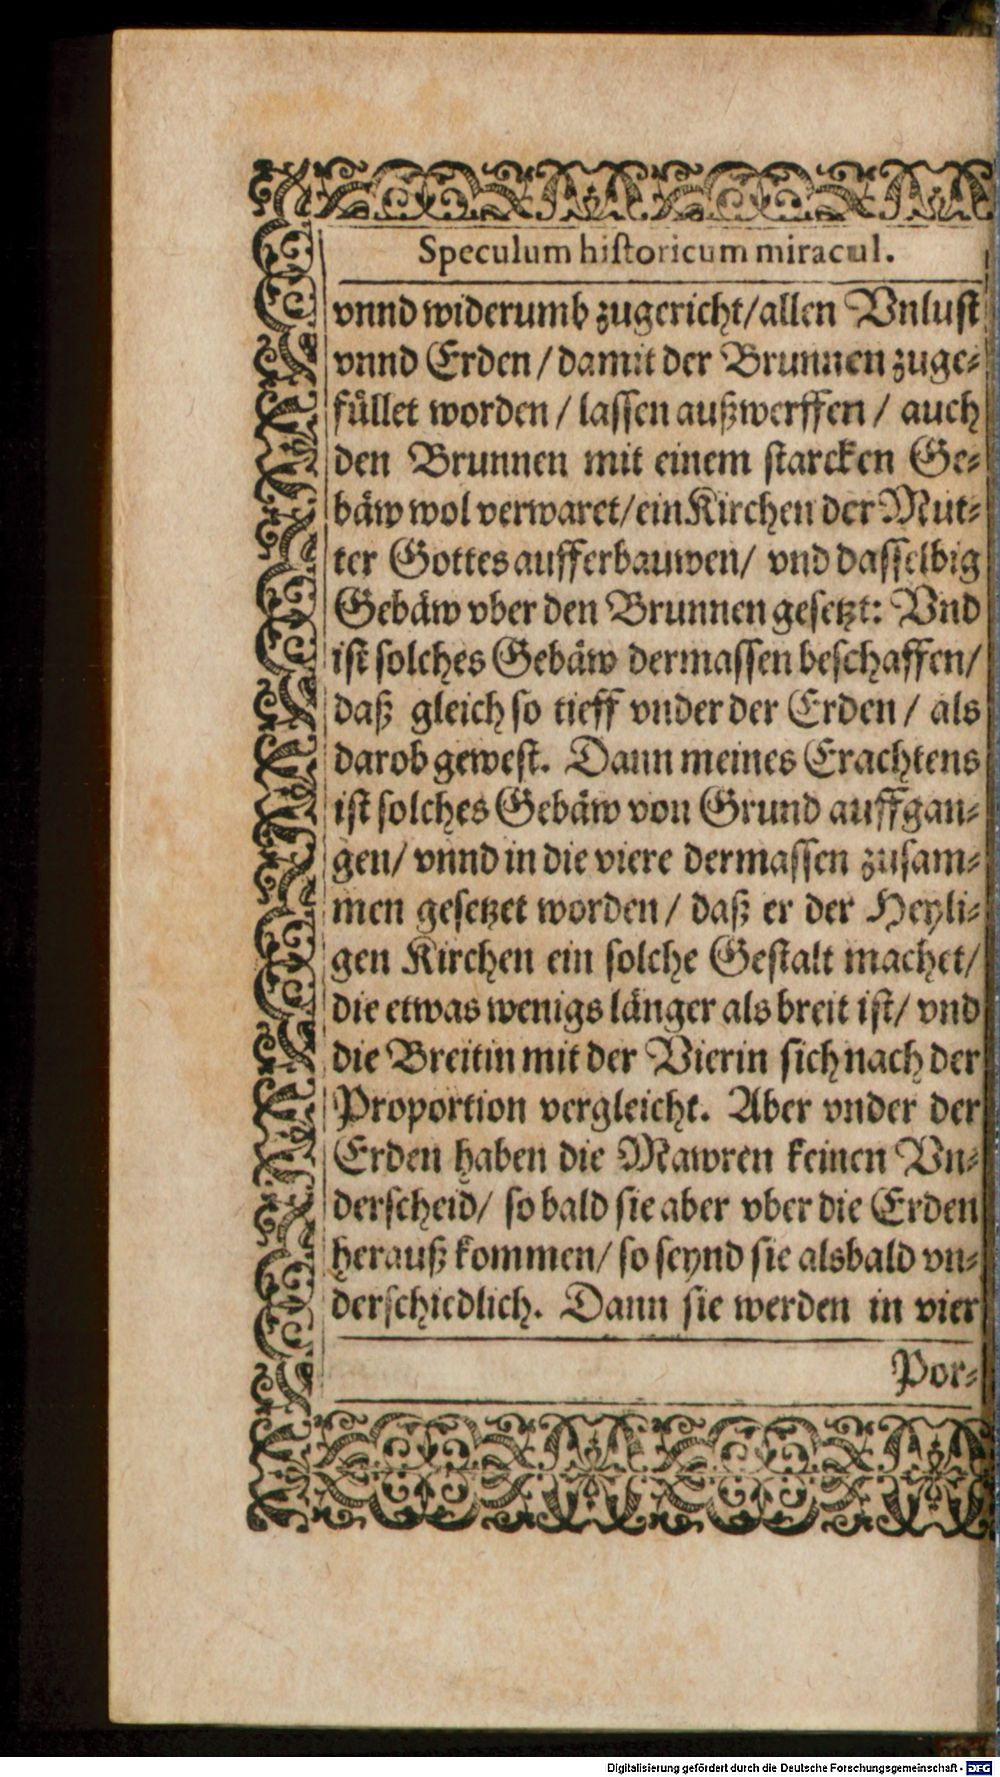 Speculum historicum miracul.
vnnd widerumb zugericht/allen Vnlust
vnnd Erden / damit der Brunnen zuge-
füllet worden / lassen außwerffen / auch
den Brunnen mit einem starcken Ge-
bäw wol verwaret/ein Kirchen der Mut-
ter Gottes aufferbauwen/ vnd dasselbig
Gebäw vber den Brunnen gesetzt: Vnd
ist solches Gebäw dermassen beschaffen/
daß gleich so tieff vnder der Erden / als
darob gewest. Dann meines Erachtens
ist solches Gebäw von Grund auffgan-
gen/ vnnd in die viere dermassen zusam-
men gesetzet worden / daß er der Heyli-
gen Kirchen ein solche Gestalt machet/
die etwas wenigs länger als breit ist/ vnd
die Breitin mit der Vierin sich nach der
Proportion vergleicht. Aber vnder der
Erden haben die Mawren keinen Vn-
derscheid/ so bald sie aber vber die Erden
herauß kommen/ so seynd sie alsbald vn-
derschiedlich. Dann sie werden in vier
Por-
Digitalisierung gefördert durch die Deutsche Forschungsgemeinschaft - DFG